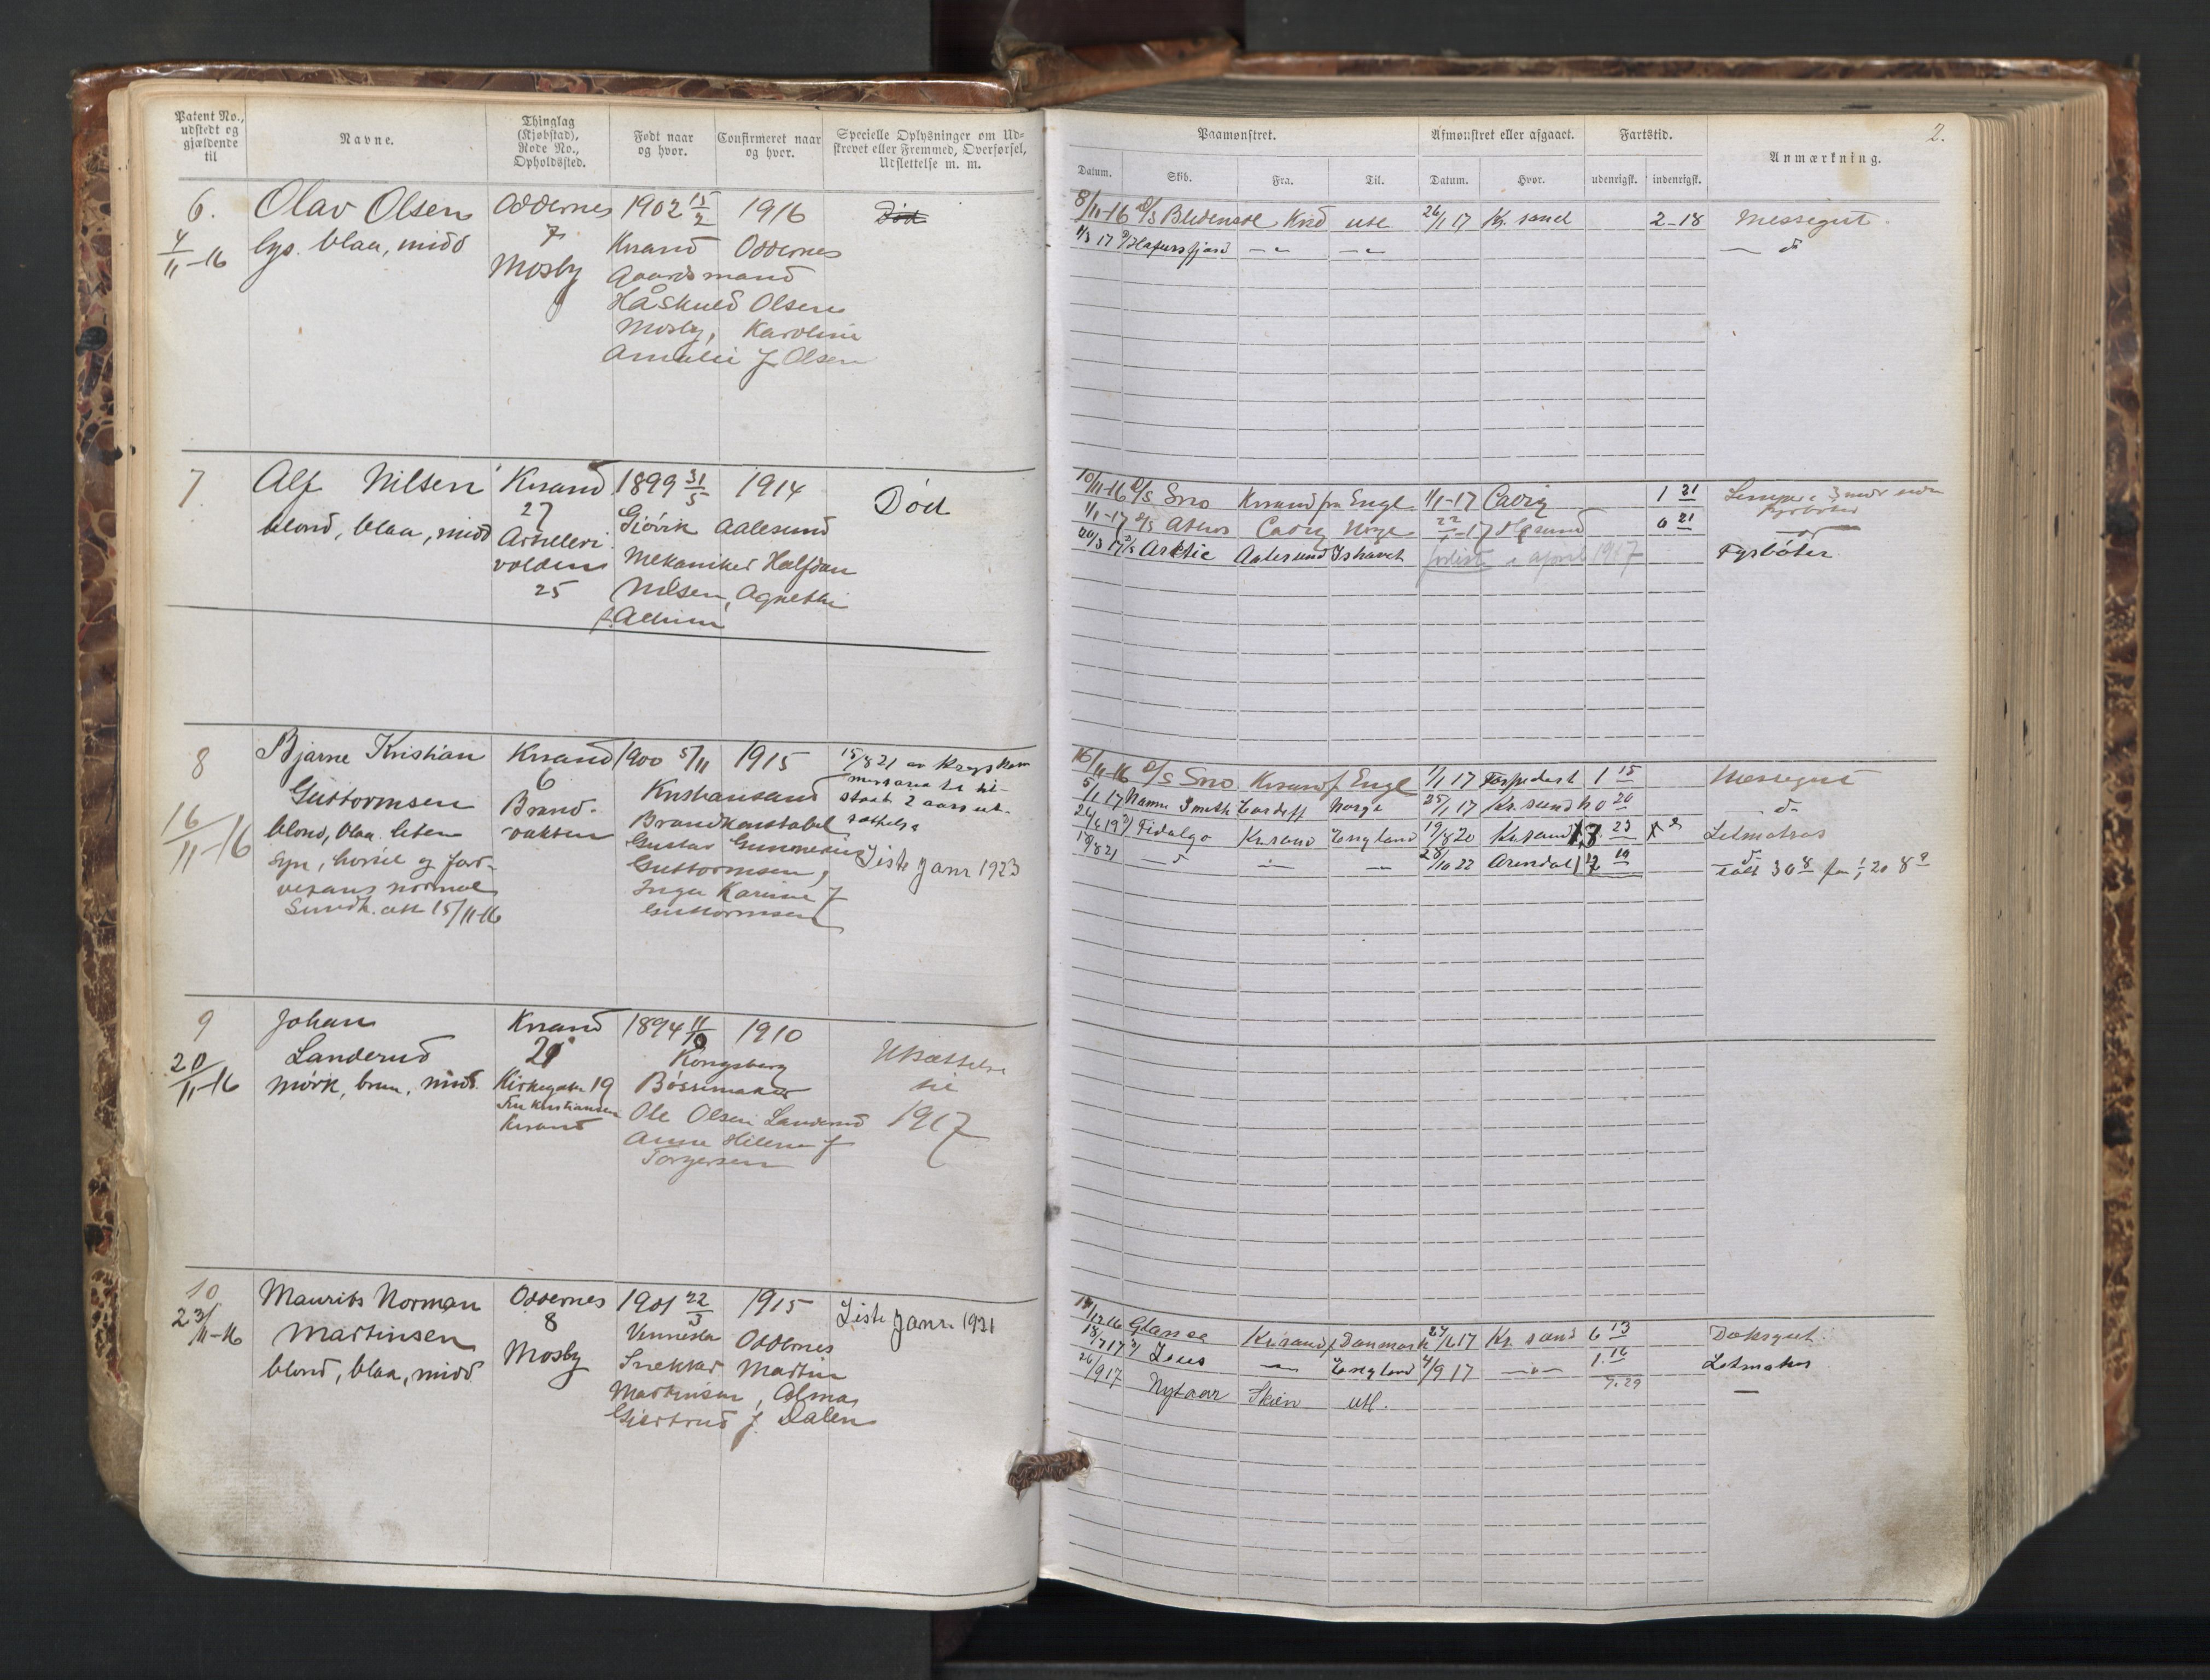 Patent No., udstedt og gjældende til
Navne.
Thinglag (Kjøbstad), Rode No., Opholdssted.
Født naar og hvor.
Confirmeret naar og hvor.
Specielle Oplysninger om Udskrevet eller Fremmed, Overførsel, Udslettelse m. m.
Paamønstret.
Afmønstret eller afgaaet.
Fartstid.
Anmærkning.
2.
Datum. Skib. Fra. Til. Datum. Hvor. udenrigsk. indenrigsk.
6. Olav Olsen Oddernes 1902 15/2 1916 Død
4/11-16 lys. blaa, midd 7 Krsand Oddernes
Mosby Gaardsmand
Håskuld Olsen
Mosby, Karoline
Amalie f Olsen
8/11-16 D/S Krsd utl 26/1 17 Kr. sand 2-18 Messegut
1/3 17 D/ Hafursfjord
7 Alf Nilsen Krsand 1899 31/5 1914 Død
blond, blaa, midd 27 Gjøvik Aalesund
Artilleri Mekaniker Halfdan
volden Nilsen, Agnethe
25
10/11-16 D/S Sno Krsand fra Engl 1/1-17 Cadiz 1 21
1/1-17 D/S Athos Cadiz Norge 22/ -17 0 21
20/3 17 D/S Arktic Aalesund Ishavet forlist i april 1917 Fyrbøter
8 Bjarne Kristian Krsand 1900 5/11 1915
Guttormsen 6 Kristiansand
16/11-16 blond, blaa. liten Brand- Brandkonstabel
Syn, hørsel og farve- vakten Gustav
sans normal Guttormsen,
Sundh. att 15/11-16 Inga Karine f
Guttormsen
15/8 21 av
2 aars ut-
sættelse
Liste Janr 1923
16/11-16 D/S Sno Krsand f Engl 1/1 17 1 15 Messegut
5/1 17 Nanna Smith Cardiff Norge 25/1 17 Kr. sand 0 20 d
26/6 19 D/ Fidalgo Krsand England 19/8 20 Krsand 23 Letmatros
19/8 21 28/10 22 Arendal
9 Johan Krsand 1894 11/10 1910
20/11-16 Landerud Kongsberg Utsættelse
mørk, brun, midd. Kirkegaten 19 Bøssemaker til
Fru Kristiansen Ole Olsen Landerud 1917
Krsand Anne Helene f
Torgersen
10 Maurits Norman Oddernes 1901 22/3 1915 Liste Janr 1921
23/11-16 Martinsen 8 Vennesla Oddernes
blond, blaa, midd. Mosby Snekker Martin
Martinsen, Alma
Gjertrud f. Dalen
Krsand f Danmark 27/6 17 Kr. sand 6 13 Dæksgut
18/7 17 D/ Zeus England 4/9 17 1. 16 Letmatros
26/9 17 Nytaar Skien utl. 7. 29